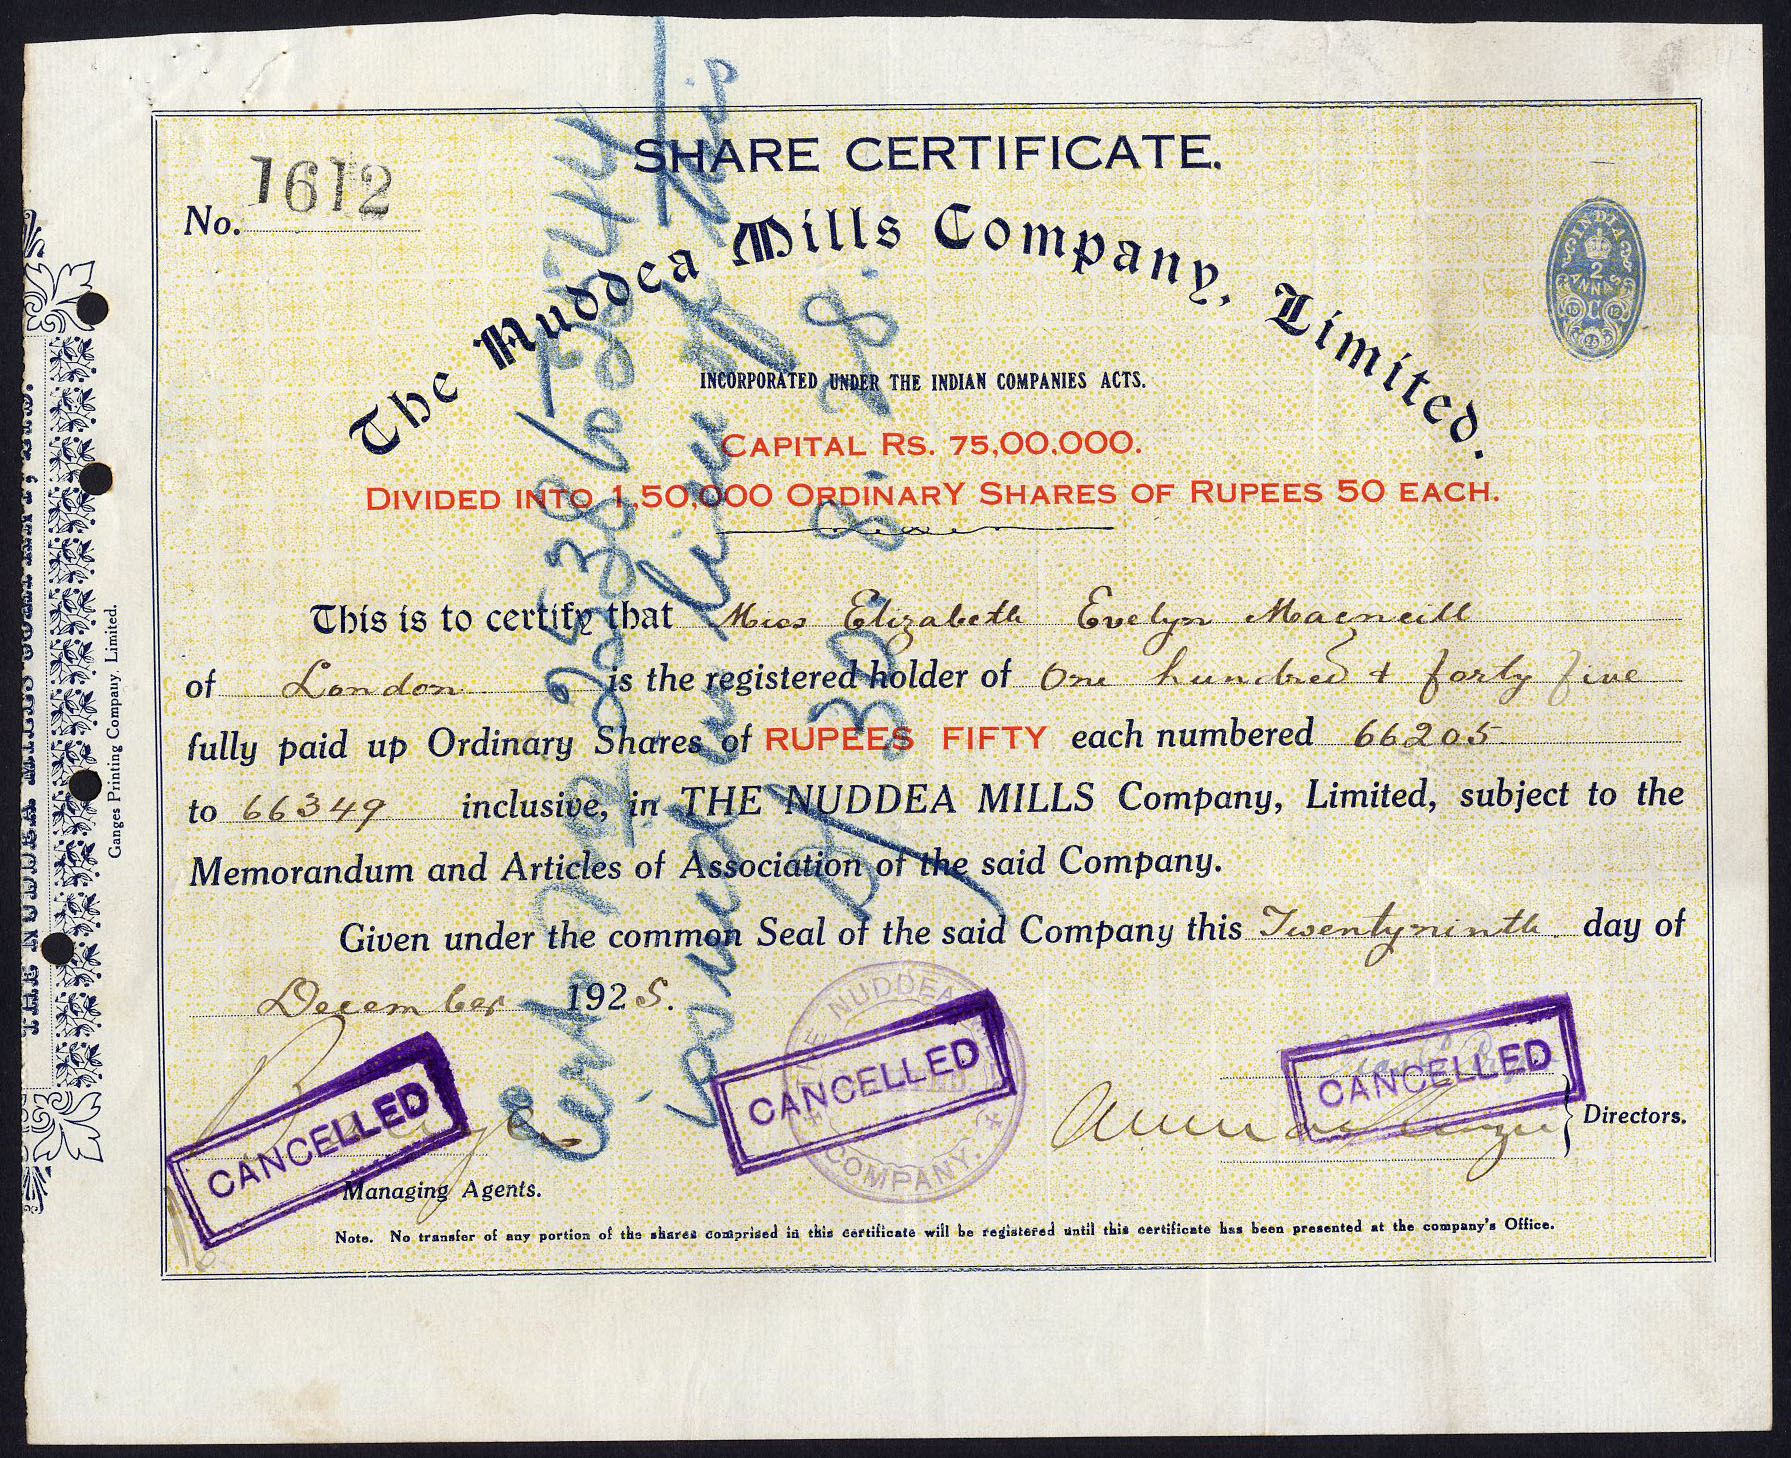 SHARE CERTIFICATE.
No. 1612
The Nuddea Mills Company, Limited.
INDIA
2
ANNAS
INCORPORATED UNDER THE INDIAN COMPANIES ACTS.
CAPITAL RS. 75,00,000.
DIVIDED INTO 1,50,000 ORDINARY SHARES OF RUPEES 50 EACH.
This is to certify that Miss Elizabeth Evelyn Macneill
of London is the registered holder of One hundred & forty five
fully paid up Ordinary Shares of RUPEES FIFTY each numbered 66205
to 66349 inclusive, in THE NUDDEA MILLS Company, Limited, subject to the
Memorandum and Articles of Association of the said Company.
Given under the common Seal of the said Company this Twentyninth day of
December 1925.
THE NUDDEA MILLS
COMPANY.
CANCELLED
CANCELLED
CANCELLED
Directors.
Managing Agents.
Note. No transfer of any portion of the shares comprised in this certificate will be registered until this certificate has been presented at the company's Office.
THE NUDDEA MILLS COMPANY, LTD.
Ganges Printing Company, Limited.
issued in lieu of this